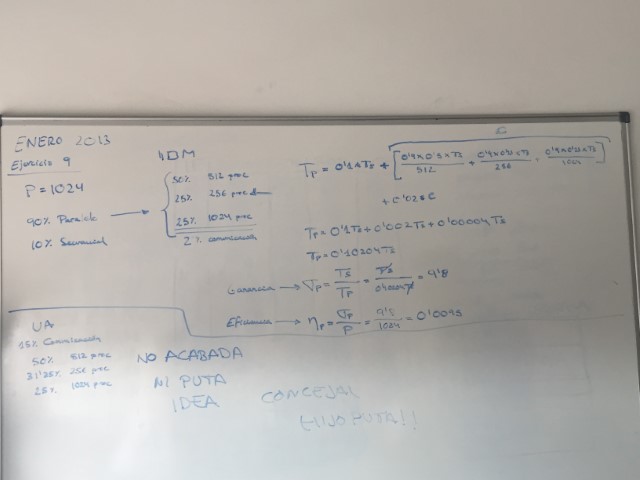 ENERO 2013
Ejercicio 9
P = 1024
90% Paralelo
10% Secuencial
IDM
50% 512 proc
25% 256 proc
25% 1024 proc
2% comunicación
C
Tp = 0'1 x Ts + [0'9x0'5xTs/512 + 0'9x0'25xTs/256 + 0'9x0'25xTs/1024]
+ 0'02 x C
Tp = 0'1Ts + 0'002Ts + 0'00004Ts
Tp = 0'10204Ts
Ganancia → σp = Ts/Tp = Ts/0'10204Ts = 9'8
Eficiencia → ηp = σp/P = 9'8/1024 = 0'0095
UA
15% Comunicación
50% 512 proc
31'25% 256 proc
25% 1024 proc
NO ACABADA
NI PUTA
IDEA
CONCEJAL
HIJOPUTA!!